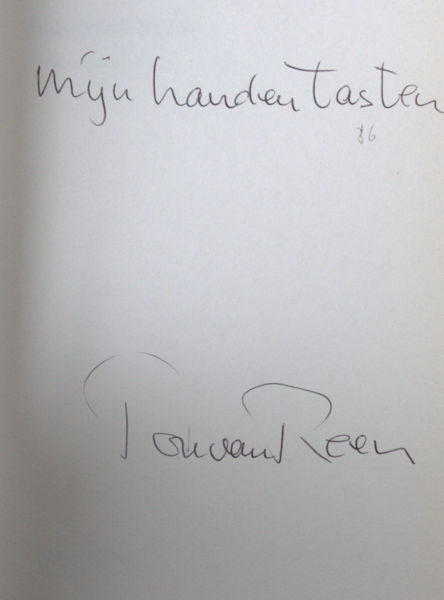 mijn handen tasten
86
Ton van Reen